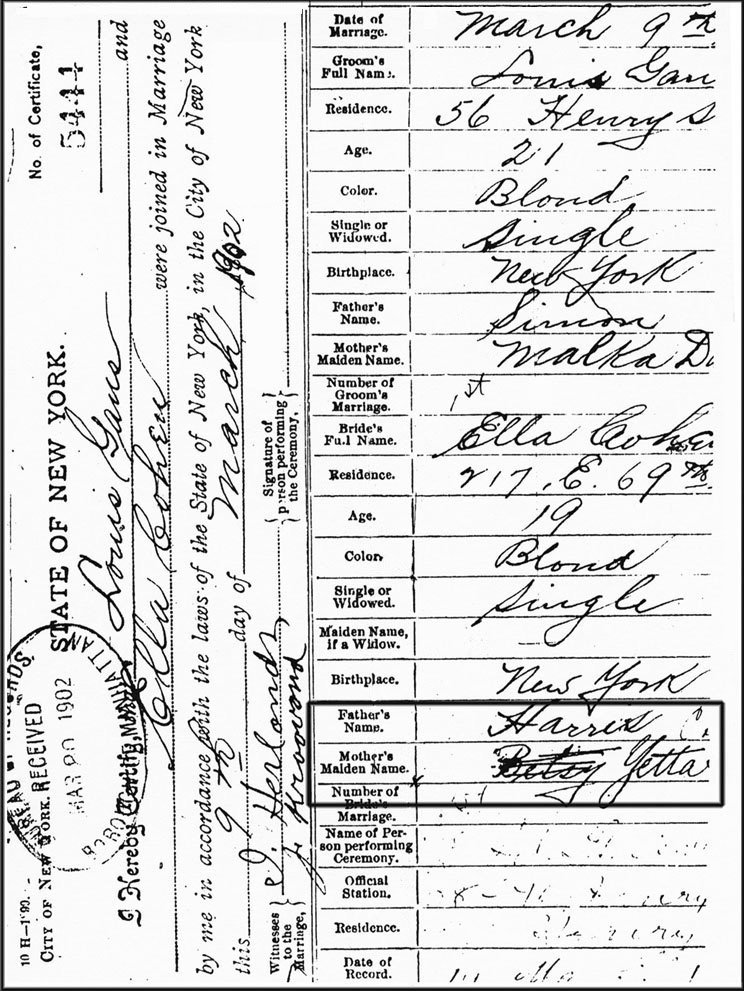 No. of Certificate,
5441
STATE OF NEW YORK.
I Hereby Certify, that Louis Gans and
Ella Cohen were joined in Marriage
by me in accordance with the laws of the State of New York, in the City of New York
this 9th day of March 1902
Witnesses to the Marriage,
Signature of person performing the Ceremony,
10 H—1'90.
CITY OF NEW YORK.
RECEIVED
MAR 20 1902
MANHATTAN
Date of Marriage. March 9th
Groom's Full Name. Louis Gan
Residence. 56 Henry S
Age. 21
Color. Blond
Single or Widowed. Single
Birthplace. New York
Father's Name. Simon
Mother's Maiden Name. Malka
Number of Groom's Marriage. 1st
Bride's Full Name. Ella Cohen
Residence. 217. E. 69th
Age. 19
Color. Blond
Single or Widowed. Single
Maiden Name, if a Widow. —
Birthplace. New York
Father's Name. Harris C
Mother's Maiden Name. Betsy Yetta
Number of Bride's Marriage.
Name of Person performing Ceremony.
Official Station.
Residence.
Date of Record.